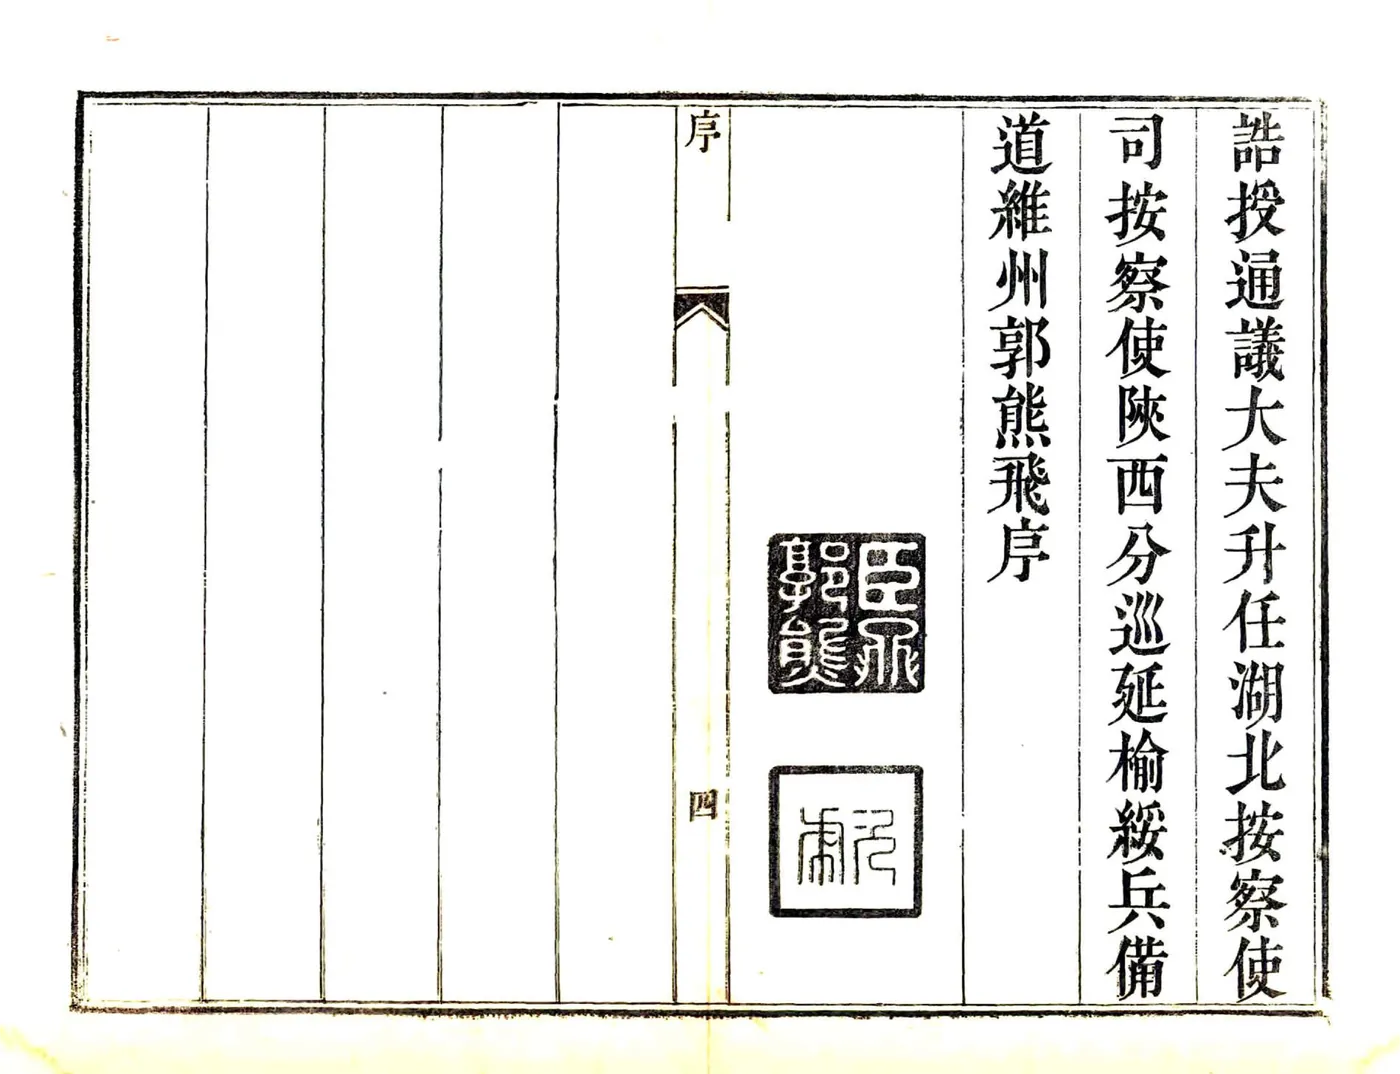 誥授通議大夫升任湖北按察使
司按察使陝西分巡延榆綏兵備
道維州郭熊飛序
臣飛
郭熊
序
四